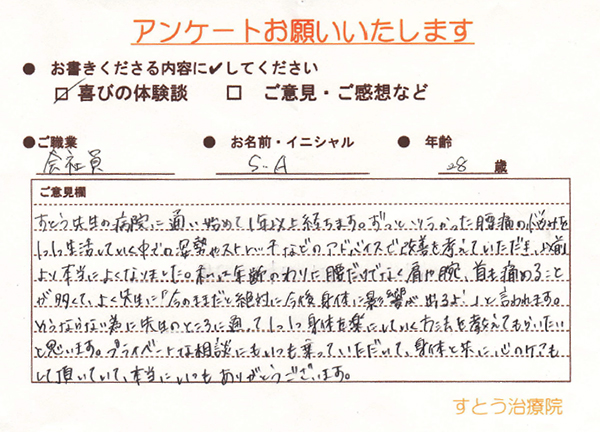 アンケートお願いいたします
● お書きくださる内容に✔してください
☑ 喜びの体験談 □ ご意見・ご感想など
●ご職業 ● お名前・イニシャル ● 年齢
会社員 S.A 28 歳
ご意見欄
すとう先生の病院に通い始めて1年以上経ちます。ずっとひどかった腰痛の悩みを
1つ1つ生活していく中での姿勢やストレッチなどのアドバイスで改善を考えていただき、以前
より本当によくなりました。私は年齢のわりに腰だけでなく肩や腕、首も痛めること
が多くて、よく先生に「今のままだと絶対に今後身体に影響が出るよ!」と言われます。
そうならない為に先生のところに通って1つ1つ身体を楽にしていく方法を教えてもらいたい
と思います。プライベートな相談にもいつも乗っていただいて、身体と共に、心のケアも
して頂いていて、本当にいつもありがとうございます。
すとう治療院